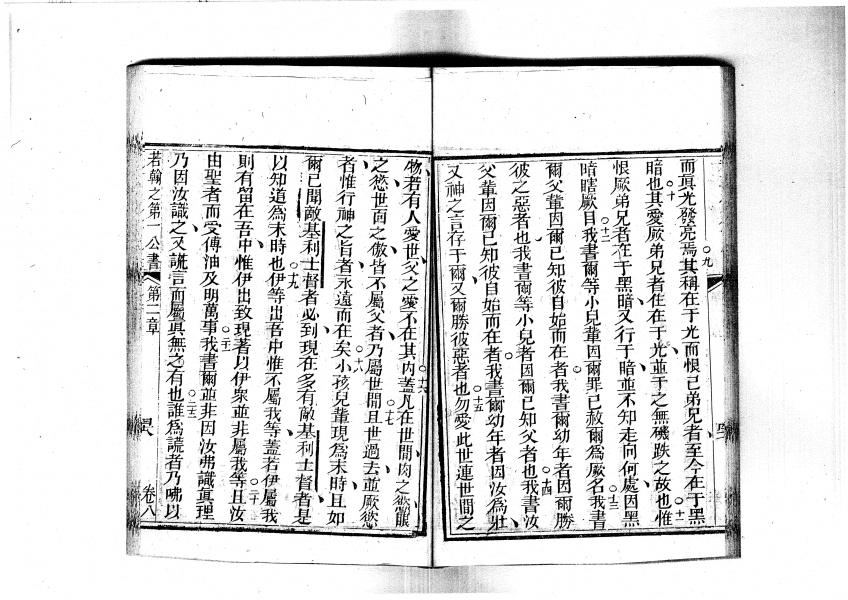 ○九
而真光發亮焉其稱在于光而恨已弟兄者至今在于黑
○十
○十一
暗也其愛厥弟兄者住在于光並于之無磯跌之故也惟
恨厥弟兄者在于黑暗又行于暗並不知走向何處因黑
○十二
○十三
暗瞎厥目我書爾等小兒輩因爾罪已赦爾為厥名我書
爾父輩因爾已知彼自始而在者我書爾幼年者因爾勝
○十四
彼之惡者也我書爾等小兒者因爾已知父者也我書汝
父輩因爾已知彼自始而在者我書爾幼年者因汝為壯
○十五
又神之言存于爾又爾勝彼惡者也勿愛此世連世間之
○十六
物若有人愛世父之愛不在其內蓋凡在世間肉之慾眼
○十七
之慾世面之傲皆不屬父者乃屬世間且世過去並厥慾
○十八
者惟行神之旨者永遠而在矣小孩兒輩現為末時且如
爾已聞敵基利士督者必到現在多有敵基利士督者是
○十九
以知道為末時也伊等出吾中惟不屬我等蓋若伊屬我
○二十
則有留在吾中惟伊出致現著以伊衆並非屬我等且汝
○二一
由聖者而受傅油及明萬事我書爾並非因汝弗識真理
○二二
乃因汝識之又謊言而屬真無之有也誰為謊者乃咈以
若翰之第一公書 第二章
卷八